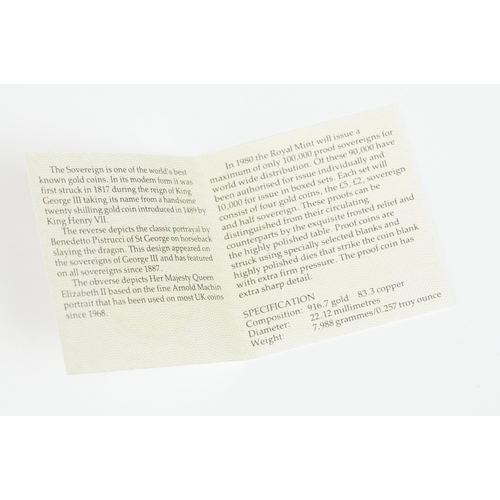 The Sovereign is one of the world's best
known gold coins. In its modern form it was
first struck in 1817 during the reign of King
George III taking its name from a handsome
twenty shilling gold coin introduced in 1489 by
King Henry VII.
The reverse depicts the classic portrayal by
Benedetto Pistrucci of St George on horseback
slaying the dragon. This design appeared on
the sovereigns of George III and has featured
on all sovereigns since 1887.
The obverse depicts Her Majesty Queen
Elizabeth II based on the fine Arnold Machin
portrait that has been used on most UK coins
since 1968.
In 1980 the Royal Mint will issue a
maximum of only 100,000 proof sovereigns for
world wide distribution. Of these 90,000 have
been authorised for issue individually and
10,000 for issue in boxed sets. Each set will
consist of four gold coins, the £5, £2, sovereign
and half sovereign. These proofs can be
distinguished from their circulating
counterparts by the exquisite frosted relief and
the highly polished table. Proof coins are
struck using specially selected blanks and
highly polished dies that strike the coin blank
with extra firm pressure. The proof coin has
extra sharp detail.
SPECIFICATION
Composition: 916.7 gold 83.3 copper
Diameter: 22.12 millimetres
Weight: 7.988 grammes/0.257 troy ounce